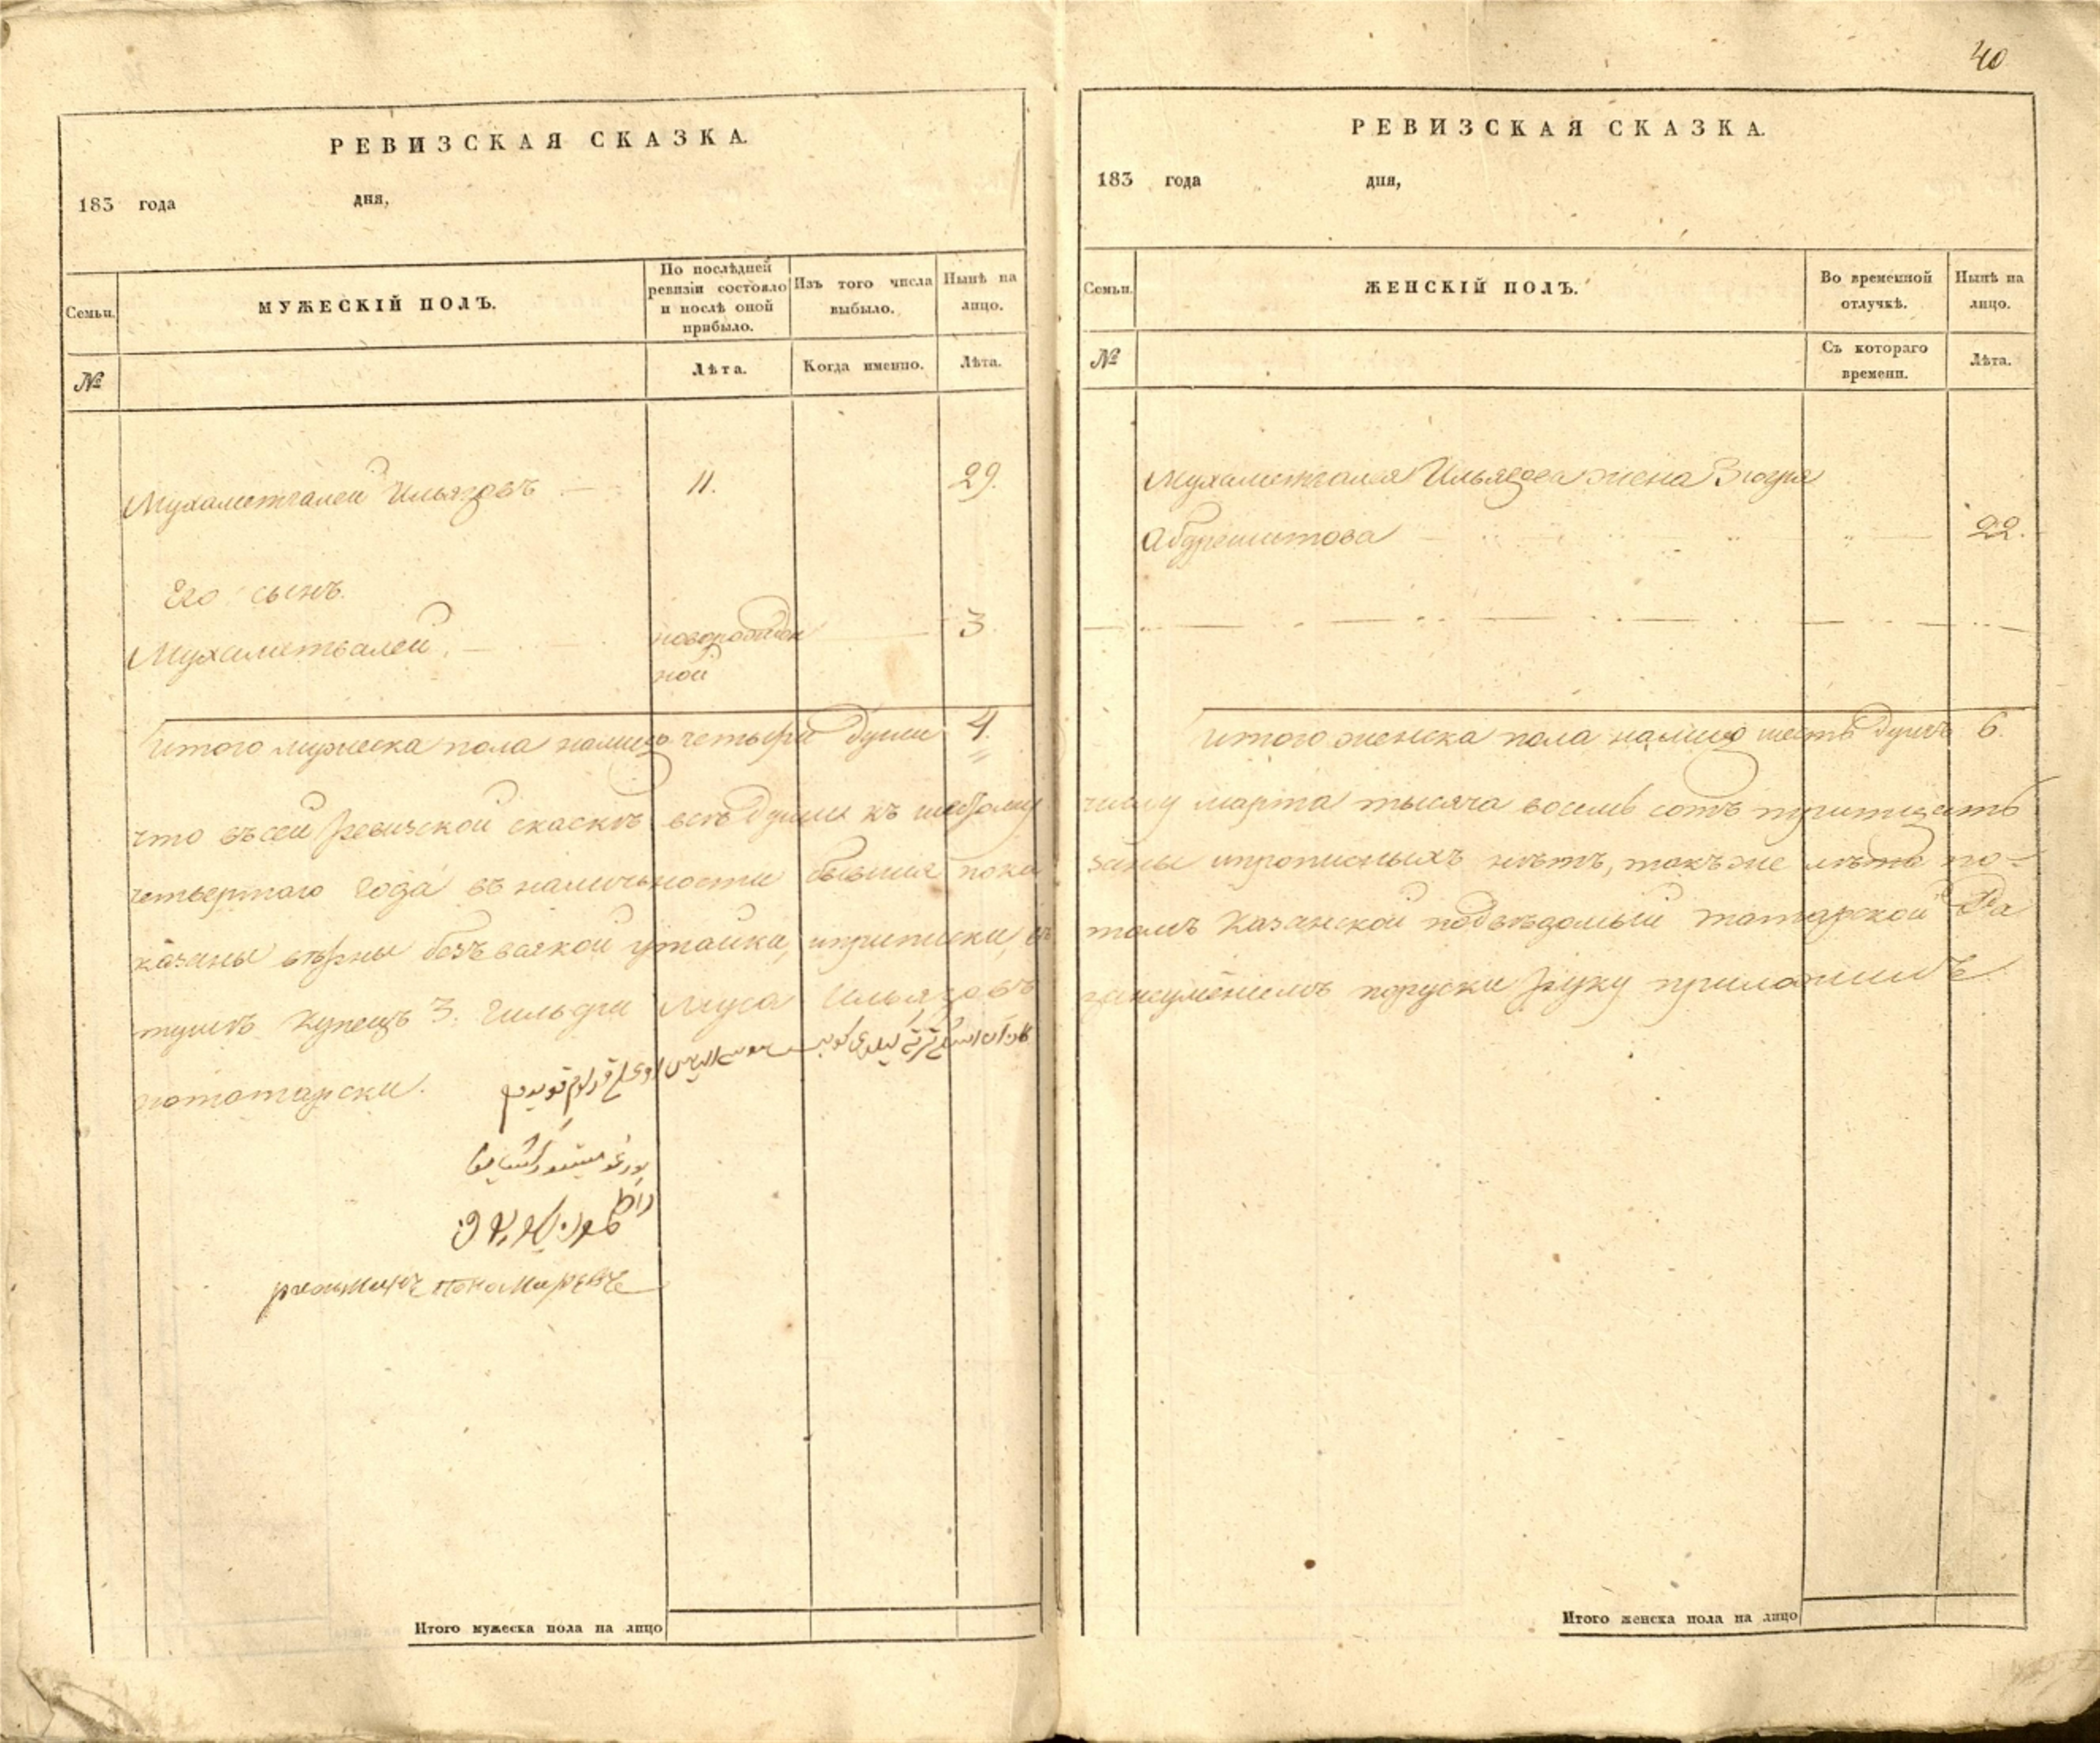 РЕВИЗСКАЯ СКАЗКА.
183 года дня,
Семьи.
МУЖЕСКІЙ ПОЛЪ.
По послѣдней ревизіи состояло и послѣ оной прибыло.
Изъ того числа выбыло.
Нынѣ на лицо.
№
Лѣта.
Когда именно.
Лѣта.
Мухаметгалей Ильязовъ 11. 29.
Его сынъ
Мухаметвалей новорожден 3
ной
Итого мужеска пола налицо четыре души 4.
что въ сей ревизской скаскѣ всѣ души къ
четвертаго года въ наличности бывшия пока
казаны вѣрны безъ всякой утайки, и приписки,
тушѣ Купецъ 3. Гильдіи Муса Ильязовъ
потатарски.
40
РЕВИЗСКАЯ СКАЗКА.
183 года дня,
Семьи.
ЖЕНСКІЙ ПОЛЪ.
Во временной отлучкѣ.
Нынѣ на лицо.
№
Съ котораго времени.
Лѣта.
Мухаметгалея Ильязова жена Зюгря
Абдрешитова 22.
Итого женска пола налицо шесть душъ 6.
числу марта тысяча восемь сотъ тритцать
заны и прописныхъ нѣтъ, такъ же лѣта по-
томъ Казанской подвѣдомый татарской Ра
поруски руку приложилъ
Итого мужеска пола на лицо
Итого женска пола на лицо